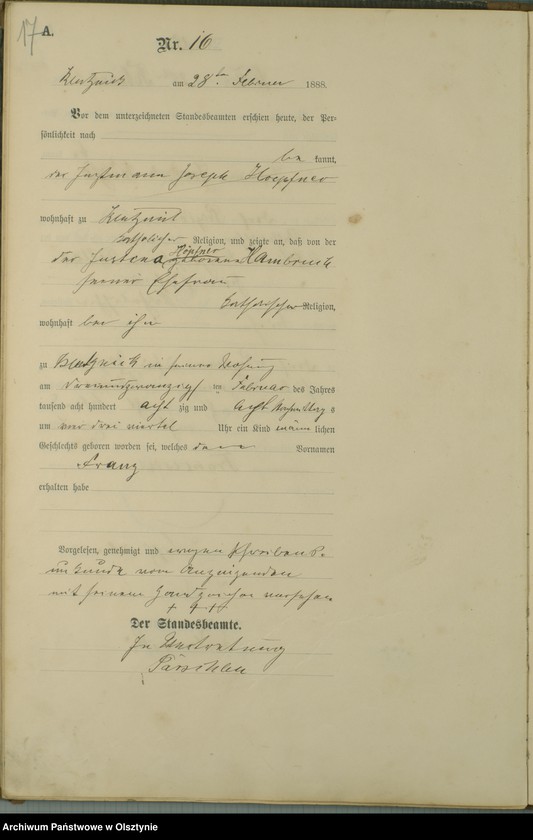 17 A.
Nr. 16
am 28ten Februar 1888.
Vor dem unterzeichneten Standesbeamten erschien heute, der Per-
sönlichkeit nach
be kannt,
der Instmann Joseph Hoepfner
wohnhaft zu
katholischer Religion, und zeigte an, daß von der
Höpfner
der Justina geborene Hambruch
seiner Ehefrau
katholischer Religion,
wohnhaft bei ihm
zu in seiner Wohnung
am dreiundzwanzigsten Februar des Jahres
tausend acht hundert acht zig und acht Nachmittags
um drei viertel Uhr ein Kind männ lichen
Geschlechts geboren worden sei, welches den Vornamen
Franz
erhalten habe
Vorgelesen, genehmigt und wegen Schreibens-
unkunde vom Anzeigenden
mit seinem Handzeichen versehen
+ + +
Der Standesbeamte.
In Vertretung
Archiwum Państwowe w Olsztynie